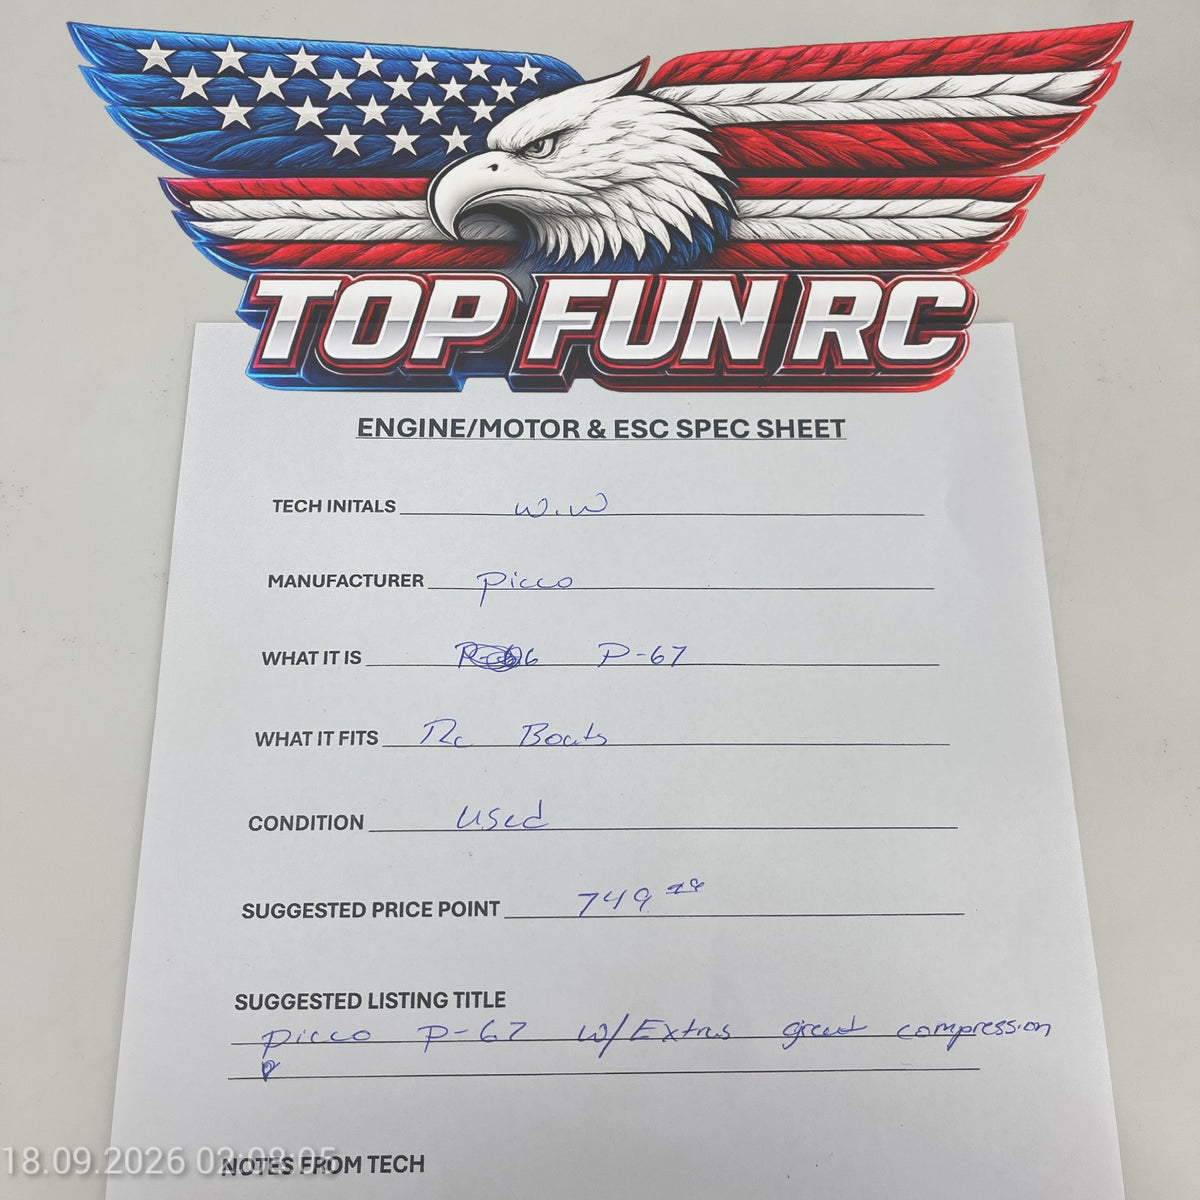 TOP FUN RC
ENGINE/MOTOR & ESC SPEC SHEET
TECH INITALS W.W
MANUFACTURER Picco
WHAT IT IS P-67
WHAT IT FITS Rc Boats
CONDITION Used
SUGGESTED PRICE POINT 749
SUGGESTED LISTING TITLE
Picco P-67 w/Extras great compression
NOTES FROM TECH
18.09.2026 02:08:05